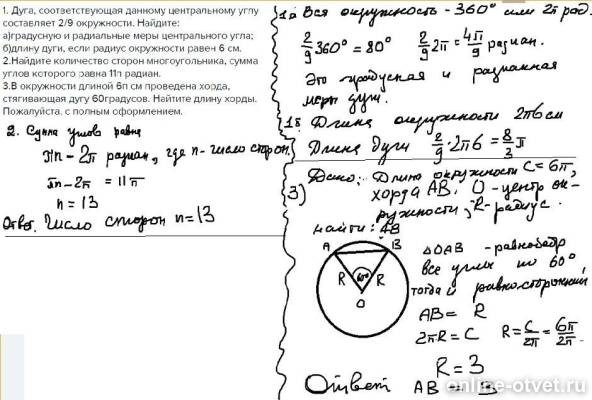 1. Дуга, соответствующая данному центральному углу
составляет 2/9 окружности. Найдите:
а)градусную и радиальные меры центрального угла;
б)длину дуги, если радиус окружности равен 6 см.
2.Найдите количество сторон многоугольника, сумма
углов которого равна 11п радиан.
3.В окружности длиной 6п см проведена хорда,
стягивающая дугу 60градусов. Найтите длину хорды.
Пожалуйста, с полным оформлением.
2. Сумма углов равна
πn-2π радиан, где n-число сторон.
πn-2π=11π
n=13
Ответ. Число сторон n=13
1а Вся окружность-360° или 2π рад.
2/9 360°=80° 2/9 2π=4π/9 радиан.
Это градусная и радианная
меры дуги.
1б. Длина окружности 2π6 см
Длина дуги 2/9·2π6=8/3 π
3) Дано: Длина окружности C=6π,
хорда AB. O-центр ок-
ружности, R-радиус.
Найти: AB
A B
R 60° R
O
ΔOAB -равнобедр
все углы по 60°,
тогда и равносторонний
AB= R
2πR=C R=C/2π=6π/2π.
R=3
Ответ AB = 3
online-otvet.ru